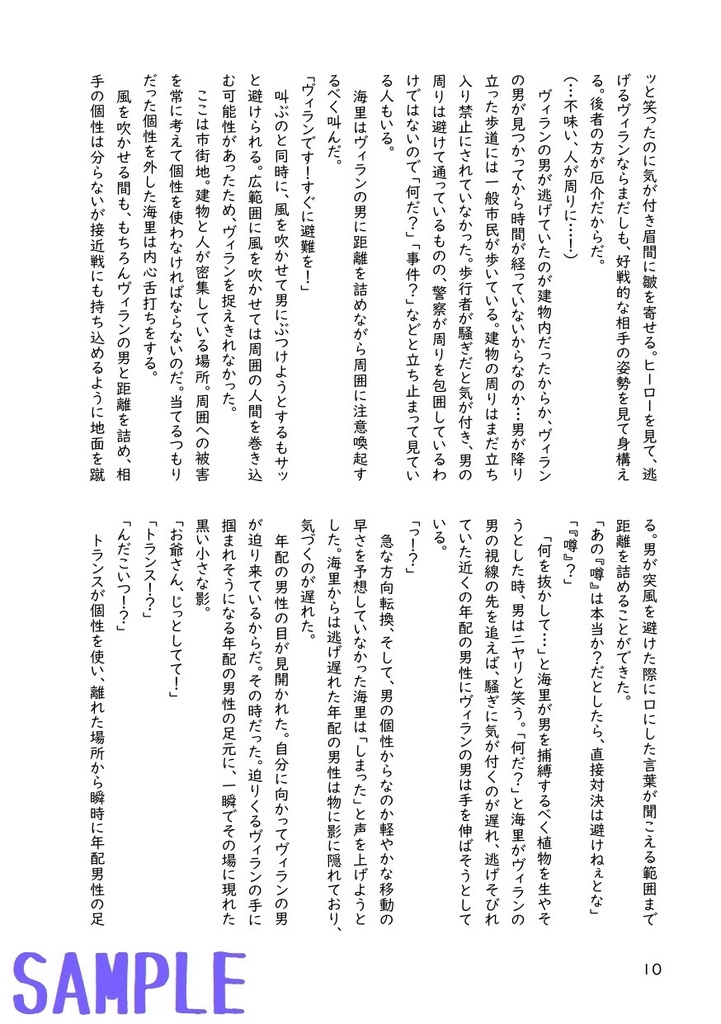 ッと笑ったのに気が付き眉間に皺を寄せる。ヒーローを見て、逃
げるヴィランならまだしも、好戦的な相手の姿勢を見て身構え
る。後者の方が厄介だからだ。
(…不味い、人が周りに…！)
ヴィランの男が逃げていたのが建物内だったからか、ヴィラン
の男が見つかってから時間が経っていないからなのか…男が降り
立った歩道には一般市民が歩いている。建物の周りはまだ立ち
入り禁止にされていなかった。歩行者が騒ぎだと気が付き、男の
周りは避けて通っているものの、警察が周りを包囲しているわ
けではないので「何だ？」「事件？」などと立ち止まって見てい
る人もいる。
海里はヴィランの男に距離を詰めながら周囲に注意喚起す
るべく叫んだ。
「ヴィランです！すぐに避難を！」
叫ぶのと同時に、風を吹かせて男にぶつけようとするもサッ
と避けられる。広範囲に風を吹かせては周囲の人間を巻き込
む可能性があったため、ヴィランを捉えきれなかった。
ここは市街地。建物と人が密集している場所。周囲への被害
を常に考えて個性を使わなければならないのだ。当てるつもり
だった個性を外した海里は内心舌打ちをする。
風を吹かせる間も、もちろんヴィランの男と距離を詰め、相
手の個性は分らないが接近戦にも持ち込めるように地面を蹴
る。男が突風を避けた際に口にした言葉が聞こえる範囲まで
距離を詰めることができた。
「あの『噂』は本当か？だとしたら、直接対決は避けねぇとな」
「『噂』？」
「何を抜かして…」と海里が男を捕縛するべく植物を生やそ
うとした時、男はニヤリと笑う。「何だ？」と海里がヴィランの
男の視線の先を追えば、騒ぎに気が付くのが遅れ、逃げそびれ
ていた近くの年配の男性にヴィランの男は手を伸ばそうとして
いる。
「っ！？」
急な方向転換、そして、男の個性からなのか軽やかな移動の
早さを予想していなかった海里は「しまった」と声を上げようと
した。海里からは逃げ遅れた年配の男性は物に影に隠れており、
気づくのが遅れた。
年配の男性の目が見開かれた。自分に向かってヴィランの男
が迫り来ているからだ。その時だった。迫りくるヴィランの手に
掴まれそうになる年配の男性の足元に、一瞬でその場に現れた
黒い小さな影。
「お爺さん、じっとしてて！」
「トランス！？」
「んだこいつ！？」
トランスが個性を使い、離れた場所から瞬時に年配男性の足
10
SAMPLE